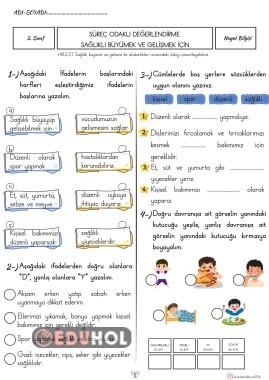 ADI-SOYADI:
2. Sınıf
SÜREÇ ODAKLI DEĞERLENDİRME
SAĞLIKLI BÜYÜMEK VE GELİŞMEK İÇİN
Hayat Bilgisi
1-) Aşağıdaki ifadelerin başlarındaki
harfleri eşleştirdiğimiz ifadelerin
başlarına yazalım.
a
Sağlıklı büyüyüp
gelişebilmek için
vücudumuzun
gelişmesini sağlar.
b
Düzenli olarak
spor yapmak
hastalıklardan
korunabiliriz.
c
Et, süt, yumurta,
sebze ve meyve
düzenli uykuya
ihtiyaç duyarız.
Kişisel bakımımızı
düzenli yaparsak
sağlıklı
yiyeceklerdir.
2-) Aşağıdaki ifadelerden doğru olanlara
"D", yanlış olanlara "Y" yazalım.
Akşam erken yatıp sabah erken
uyanmaya dikkat ederim.
Ellerimizi yıkamak, banyo yapmak kişisel
bakımımız için gerekli değildir.
Spor
EDUHOL
Gazlı içecekler, cips, şeker gibi yiyecekler
sağlıklıdır.
3-) Cümlelerde boş yerlere sözcüklerden
uygun olanını yazınız.
kişisel
spor
düzenli
sağlıklı
1 Düzenli olarak yapmalıyız.
2 Dişlerimizi fırçalamak ve tırnaklarımızı
kesmek bakımımız için
gereklidir.
3 Et, süt ve yumurta gibi
yiyecekler yeriz.
4 Kişisel bakımımızı olarak
yaparız.
4-) Doğru davranışa ait görselin yanındaki
kutucuğu yeşile, yanlış davranışa ait
görselin yanındaki kutucuğu kırmızıya
boyayalım.